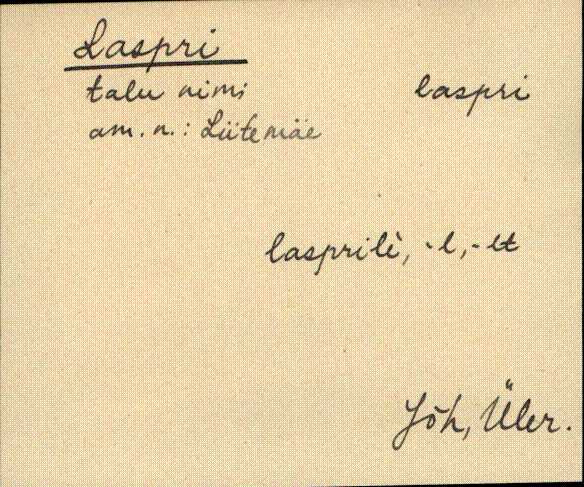 Laspri
talu nimi laspri
am. n.: Liitemäe
lasprilè, -l, -lt
Jõh, Üler.